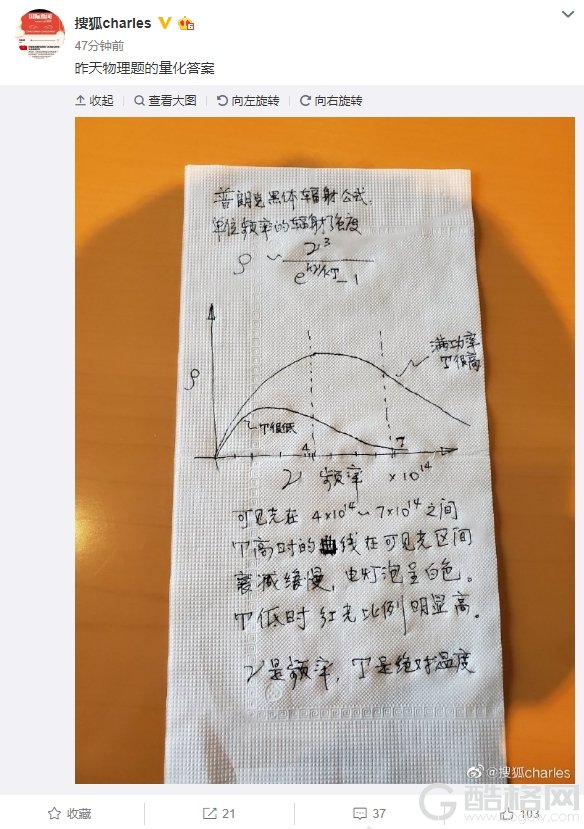 搜狐charles
47分钟前
昨天物理题的量化答案
收起 查看大图 向左旋转 向右旋转
普朗克黑体辐射公式.
单位频率的辐射强度
ρ ~ ν³
e^hν/kT -1
满功率
T很高
ρ
T很低
4 7
ν 频率 ×10¹⁴
可见光在 4×10¹⁴ ~ 7×10¹⁴ 之间
T高时的曲线在可见光区间
衰减缓慢, 电灯泡呈白色。
T低时 红光比例明显高.
ν是频率, T是绝对温度
@搜狐charles
收藏 21 37 103
酷格网